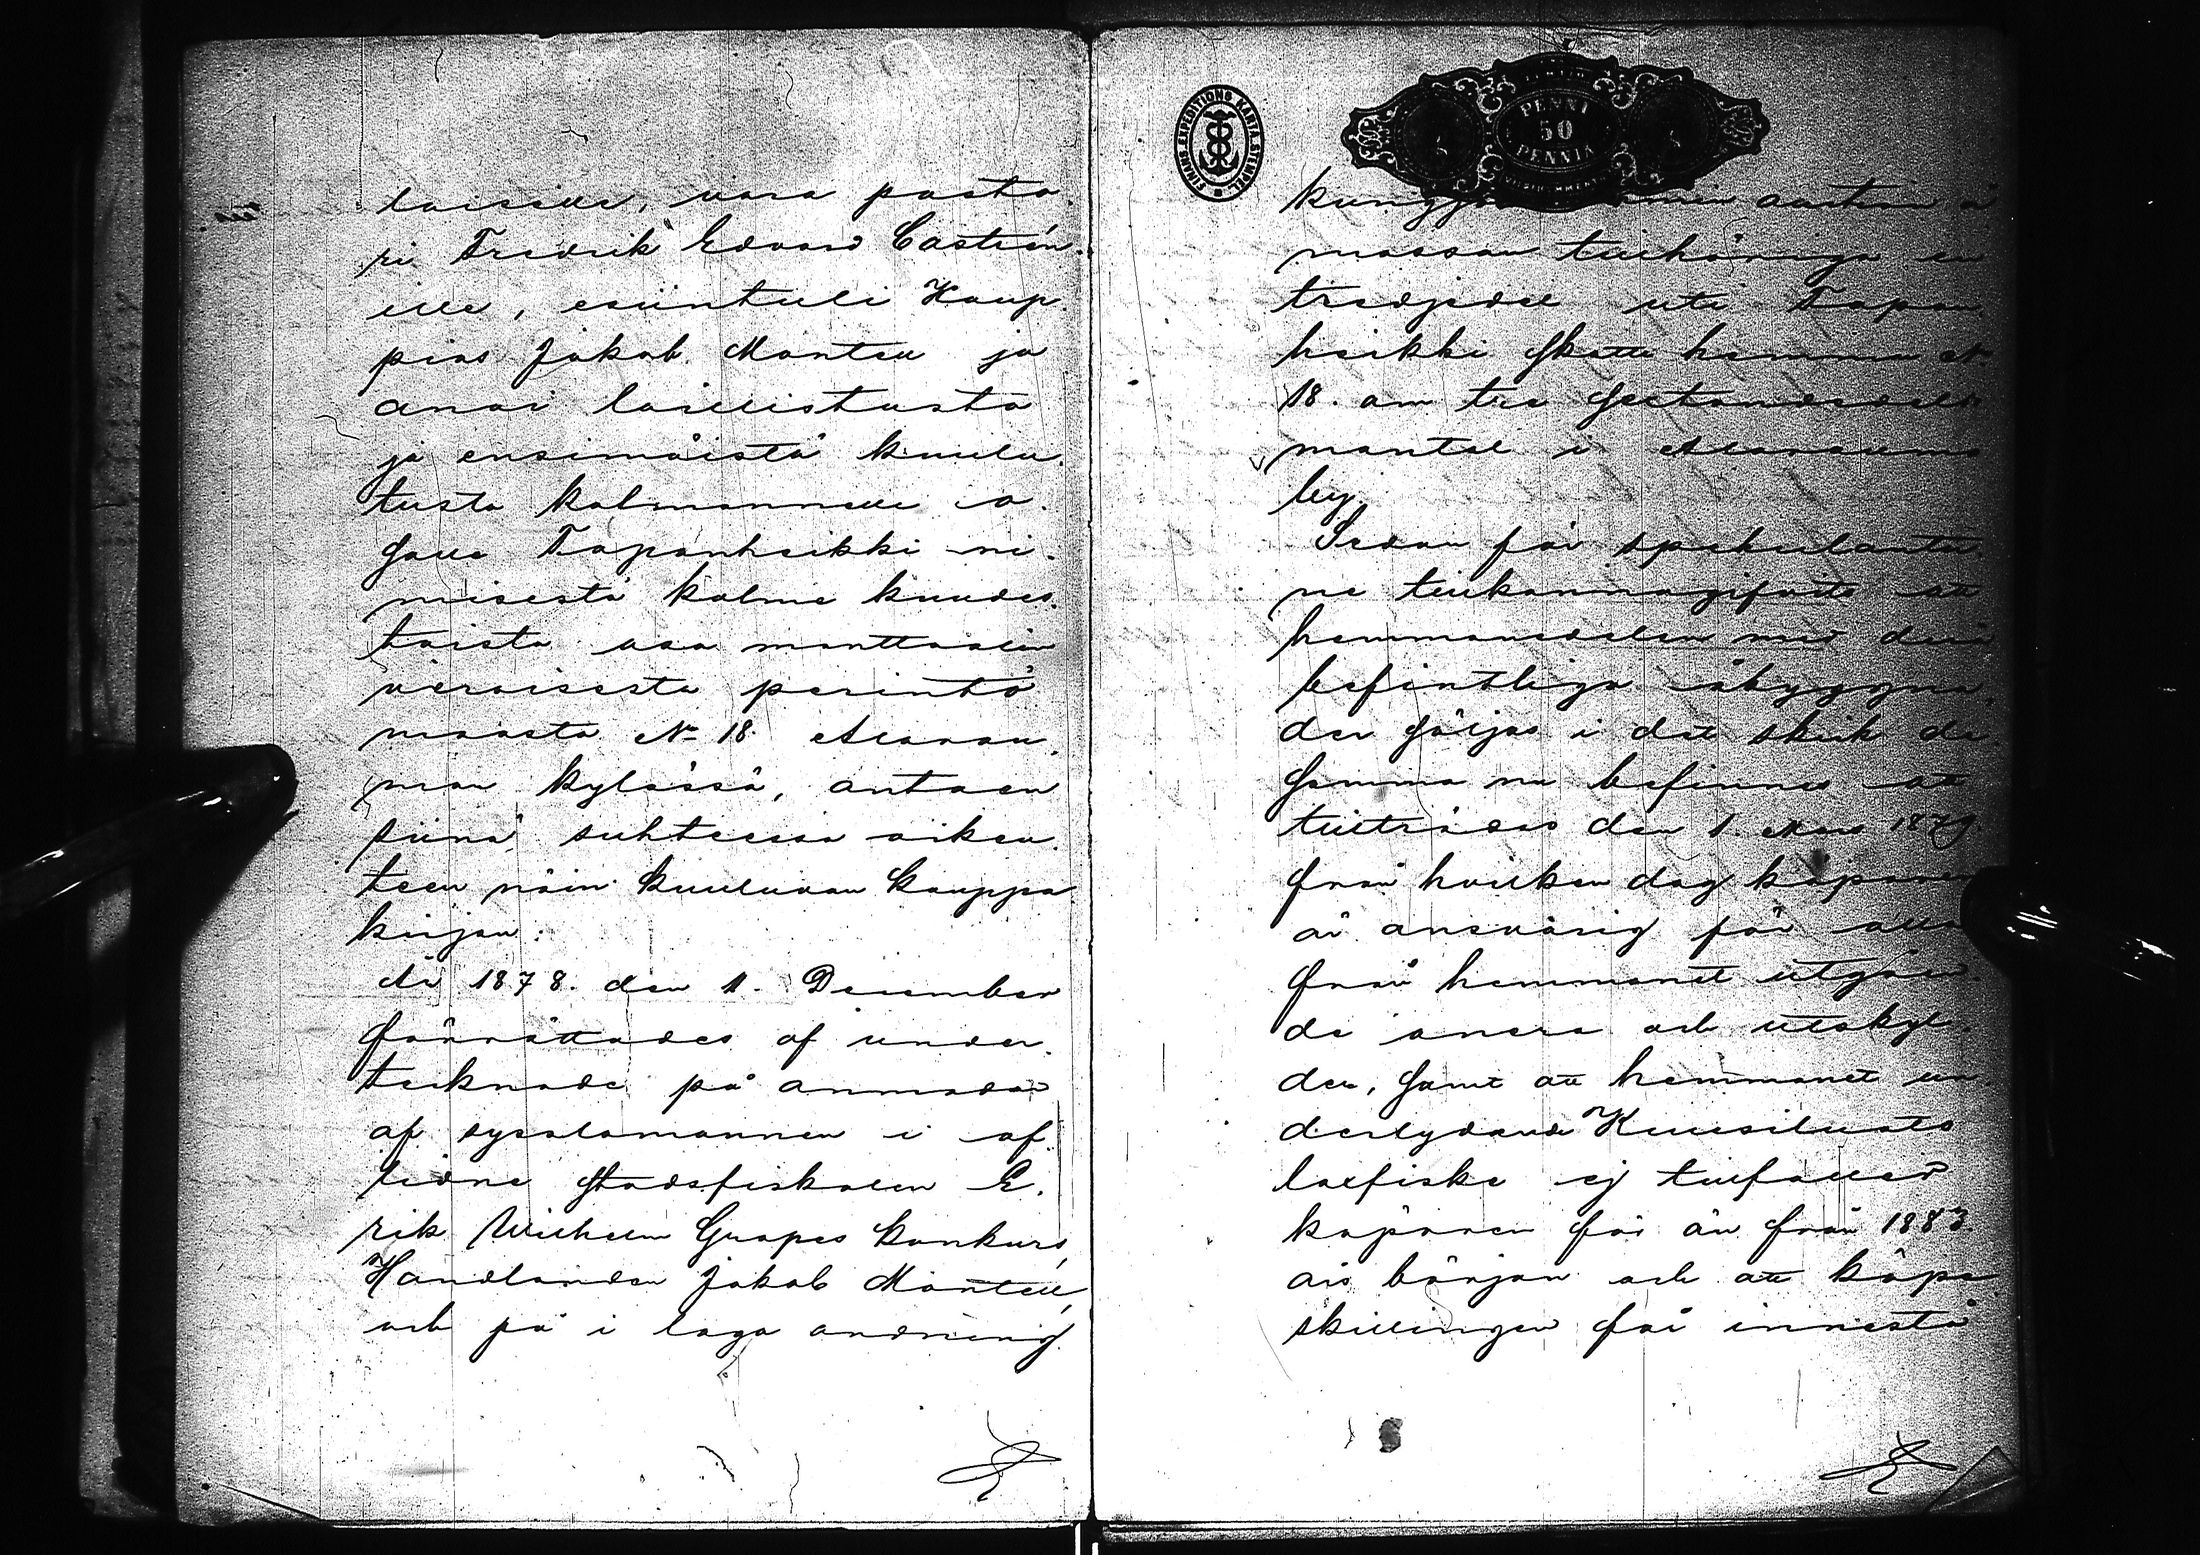 laisille, vara pasto-
ri Fredrik Edvard Castrén-
ille, esiintuli Kaup-
pias Jakob Montell ja
anoi laillistusta
ja ensimäistä kuulu-
tusta kolmannelle o-
salle Tapanheikki ni-
misestä kolme kuudes-
toista osa manttaalin
veroisesta perintö
maasta No 18 Alarau-
man kylässä, antaen
siinä suhteessa oikeu-
teen näin kuuluvan kauppa
kirjan:
År 1878. den 11. December
förrättades af under-
tecknade på anmodan
af sysslomannen i af-
lidne Stadsfiskalen E-
rik Wilhelm Grapes konkurs,
Handlanden Jakob Montell,
och på i laga ordning
FINSKA EXPEDITIONS KARTA STEMPEL
PENNI
50
PENNIÄ
auktion å
massan tillhöriga en
tredjedel uti Tapan-
heikki Skatte hemman No
18. om tre Sextondedels
mantal i Alaraumo
by.
Sedan för spekulanter-
ne tillkännagifvits att
hemmansdelen med derå
befintliga åbyggna-
der säljas i det skick de-
samma nu befinnes att
tillträdas den 1. Mars 1879.
från hvilken dag köparen
är ansvarig för alla
från hemmanet utgåen-
de onera och utskyl-
der, samt att hemmanet un-
derlydande Kuusiluoto
laxfiske ej tillfaller
köparen för än från 1883
års början och att köpe
skillingen får innestå